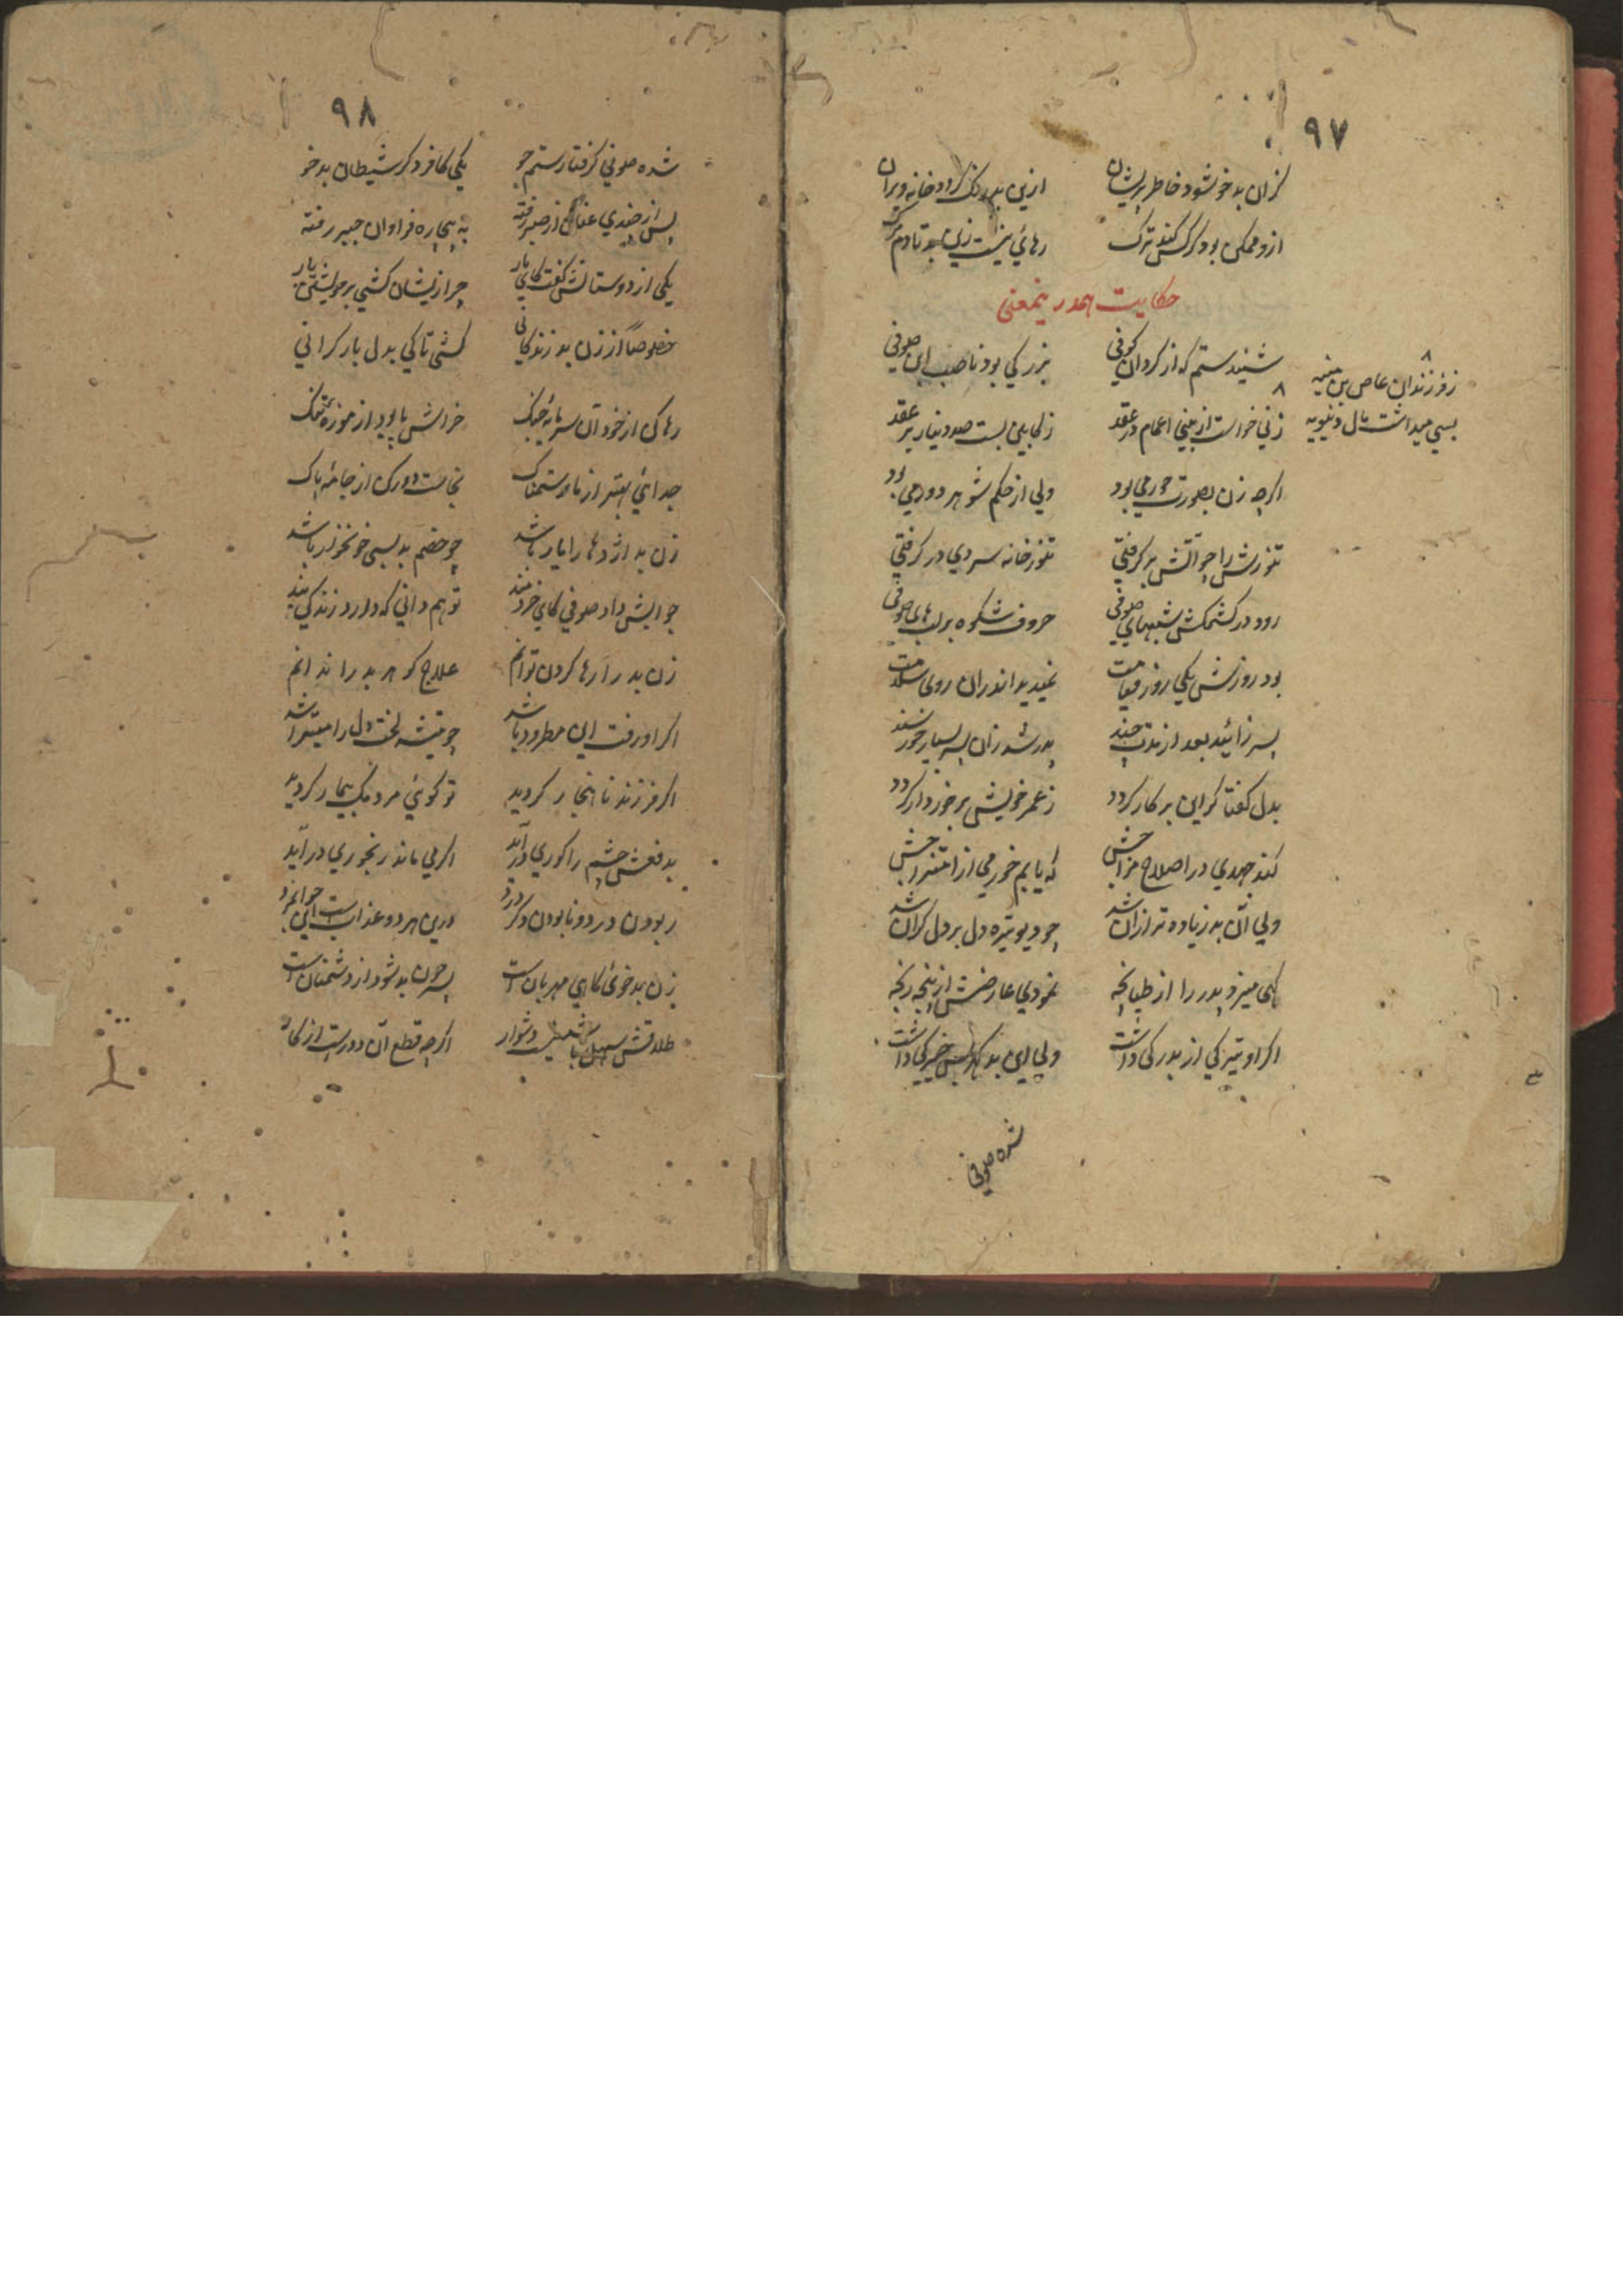 ۹۷
کزان بدخو شود خاطر پریشان ازین بدرگ گردد خانه ویران
ازو ممکن بود گر کس کند ترک رهائی نیست زین بد تا دم مرگ
حکایت هم درینمعنی
شنیدستم که از کردان کوفی بزرگی بود ناصب ابن صوفی
زفرزندان عاص بن منبه
بسی میداشت مال دنیویه
زنی خواست از بنی اعمام در عقد زکابین بست صد دینار بر عقد
اگرچه زن بصورت حورمی بود ولی از حکم شوهر دورمی بود
تنورش را چو آتش بر گرفتی تنور خانه سردی در گرفتی
رود در کشمکش شبهای صوفی حروف شکوه بر لبهای صوفی
بود روزش یکی روز قیامت نمیدید اندران روی سلامت
پسر زائید بعد از مدت چند پدر شد زان پسر بسیار خورسند
بدل گفتا گر این بر کار گردد ز عمر خویش برخوردار گردد
کند جهدی در اصلاح مزاجش که یابم خورمی از امتزاجش
ولی آن بد زیاده تر ازان شد چو دیو تیره دل بر دل گران شد
گهی میزد پدر را از طپانچه نمودی عارضش از پنجه رنجه
اگر او تیزکی از بدرکی داشت ولی این بد گهر بس خیرگی داشت
شده صوفی
۹۸
شده صوفی گرفتار ستم جو یکی کافر دگر شیطان بدخو
پس از چندی عنان از صبر رفته به بیچاره فراوان جبر رفته
یکی از دوستانش گفت کای یار چرا زیشان کشی بر خویشتن بار
خصوصاً از زن بد زندگانی کشی تا کی بدل بار گرانی
رها کن از خود آن سرمایه جنگ خراش پا بود از موزه تنگ
جدائی بهتر از مار ستمناک نجاست دور کن از جامه پاک
زن بد اژدها را یار باشد چو خصم بد بسی خونخوار باشد
جوابش داد صوفی کای خردمند تو هم دانی که دارد زندگی بند
زن بد را رها کردن توانم علاج گوهر بد را ندانم
اگر او رفت این مطرود باشد چو تیشه لخت دل را میتراشد
اگر فرزند ناهنجار گردید تو گوئی مردمک بیمار گردید
بدفعش چشم را کوری در آید اگر می ماند رنجوری در آید
ربودن درد و نابودن دگر درد درین هر دو عذاب است ای جوانمرد
زن بدخوی گاهی مهربان است پسر چون بد شود از دشمنان است
طلاقش سهل باشد نیست دشوار اگرچه قطع آن دورست از کار